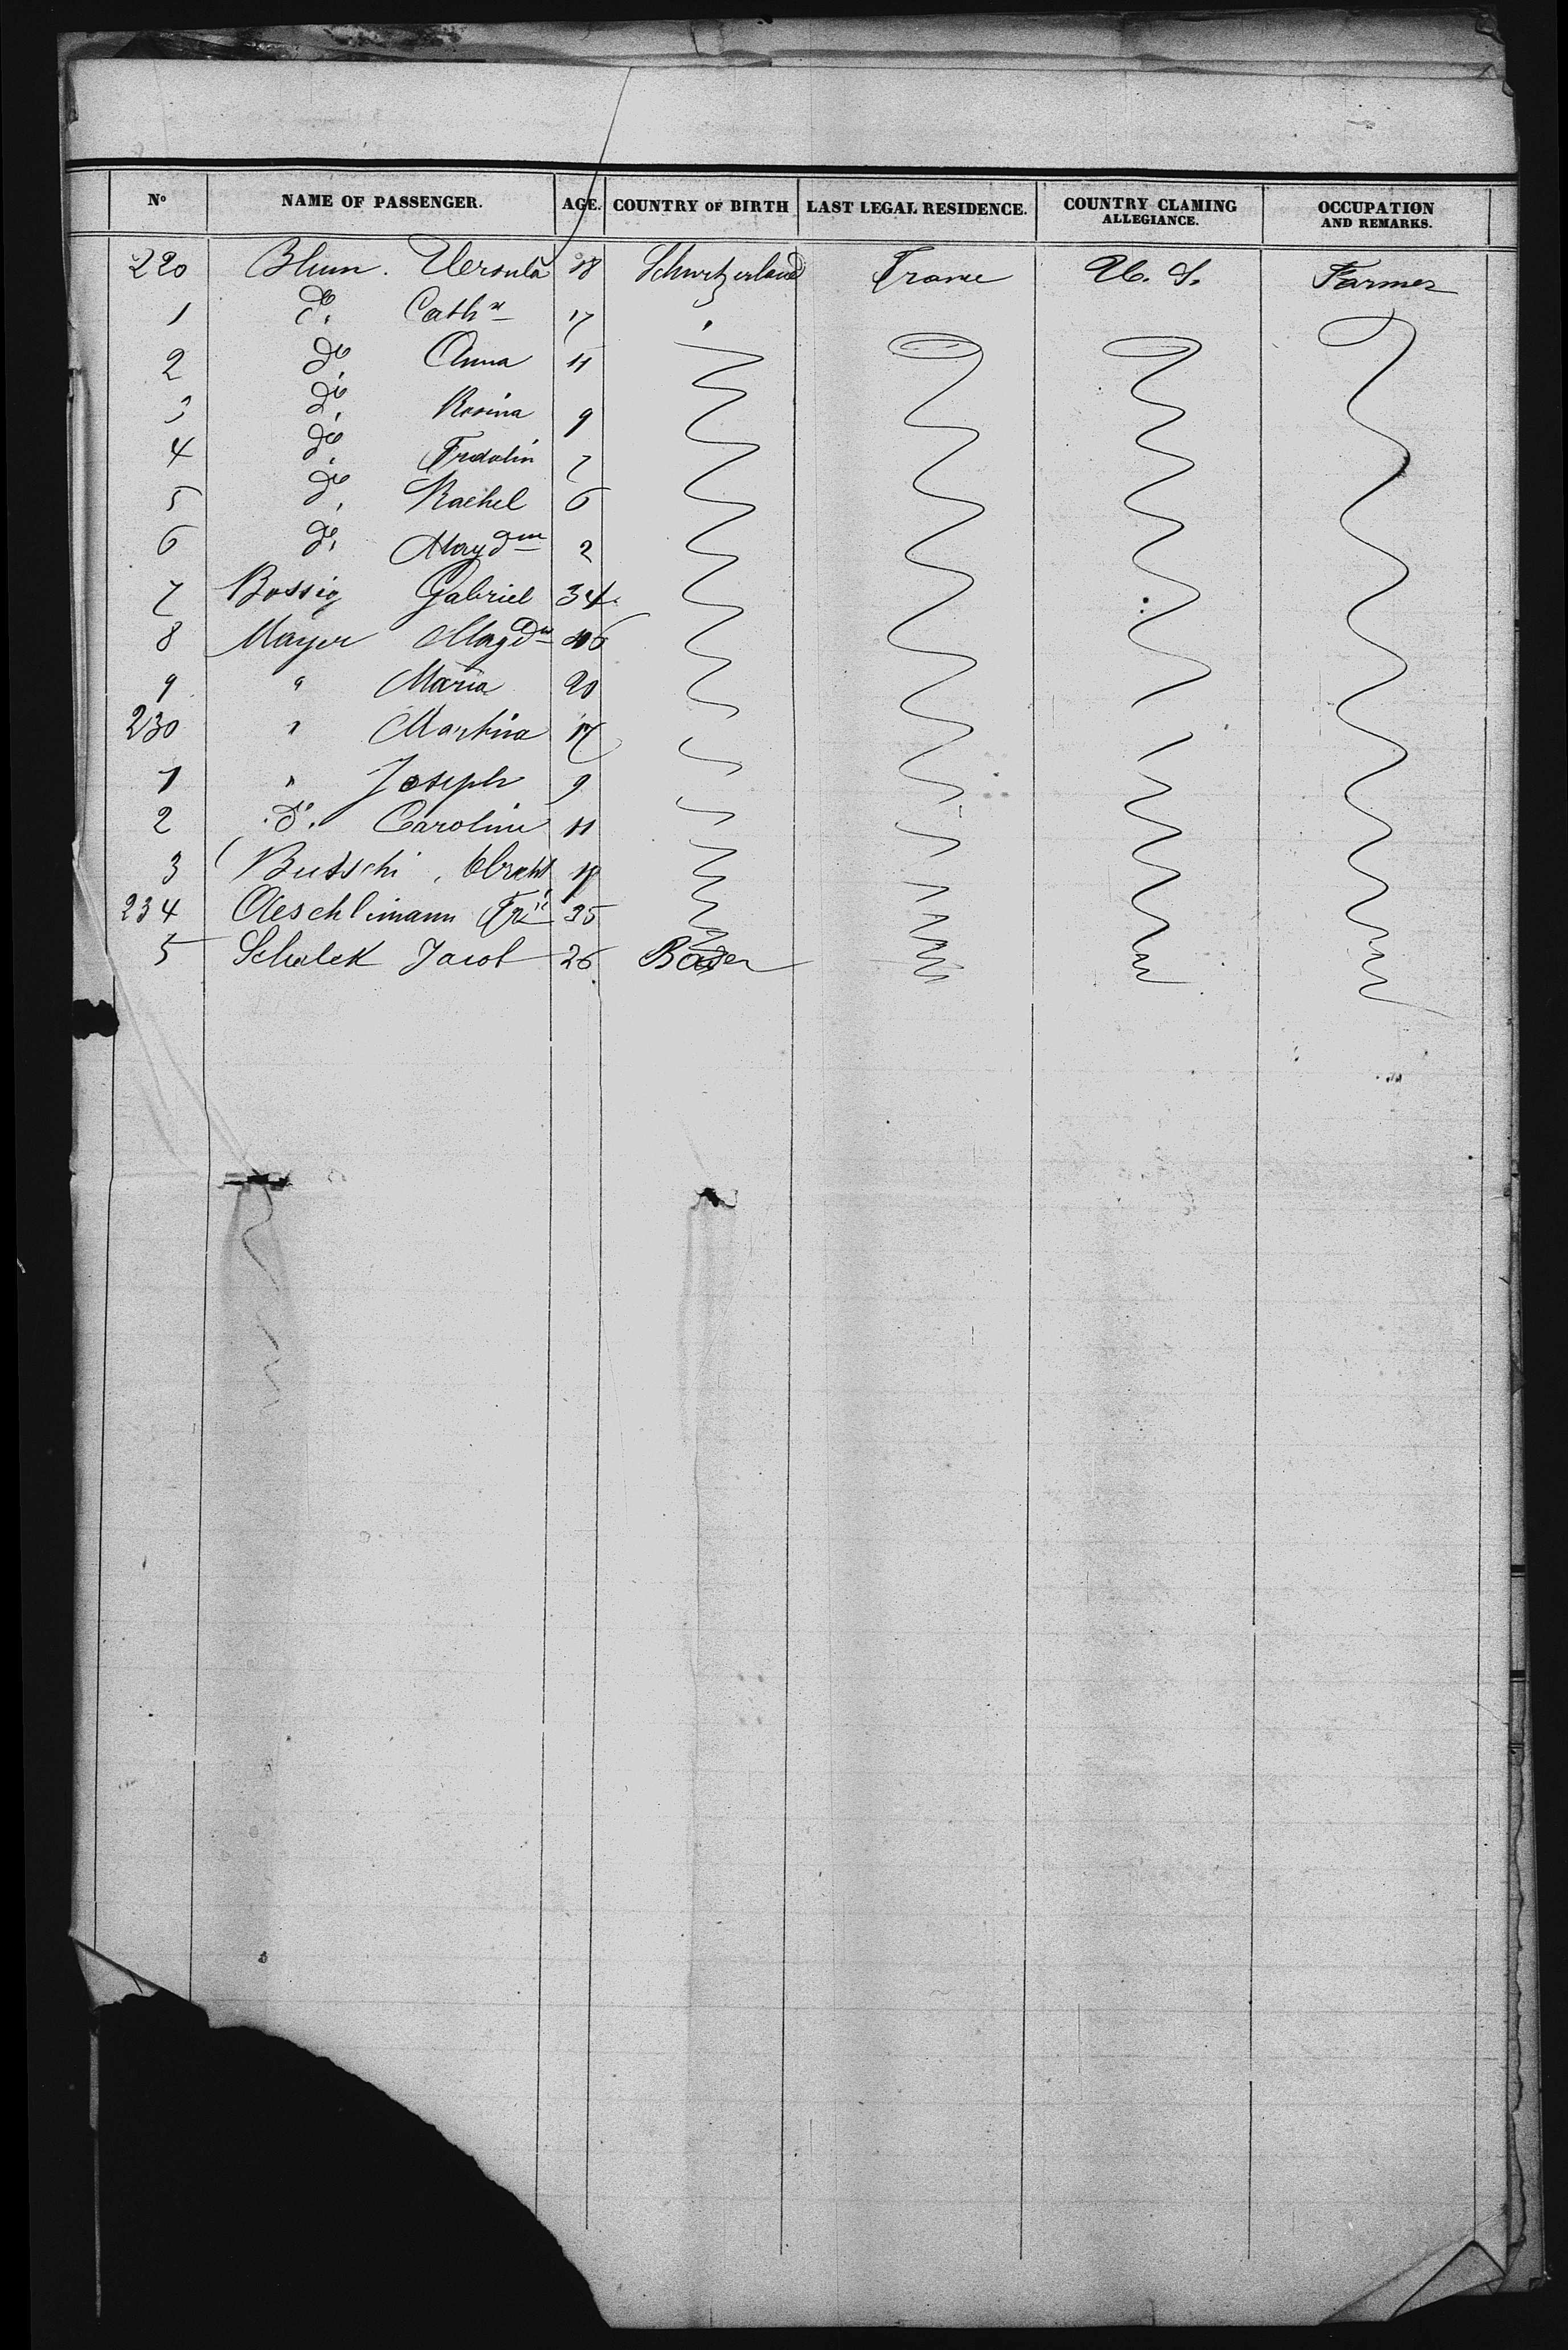 No NAME OF PASSENGER. AGE. COUNTRY OF BIRTH LAST LEGAL RESIDENCE. COUNTRY CLAMING ALLEGIANCE. OCCUPATION AND REMARKS.
220 Blum. Ursula 18 Schwitzerland France U. S. Farmer
1 do. Cathne 17
2 do. Anna 11
3 do. Rosina 9
4 do. Fridolin 7
5 do. Rachel 6
6 do. Magdna 2
7 Bossig Gabriel 34
8 Mayer Magdna 46
9 " Maria 20
230 " Martina 17
1 " Joseph 9
2 do. Caroline 11
3 Butschi
234 Aeschlimann 35
5 Schalck Jacob 26 Baden